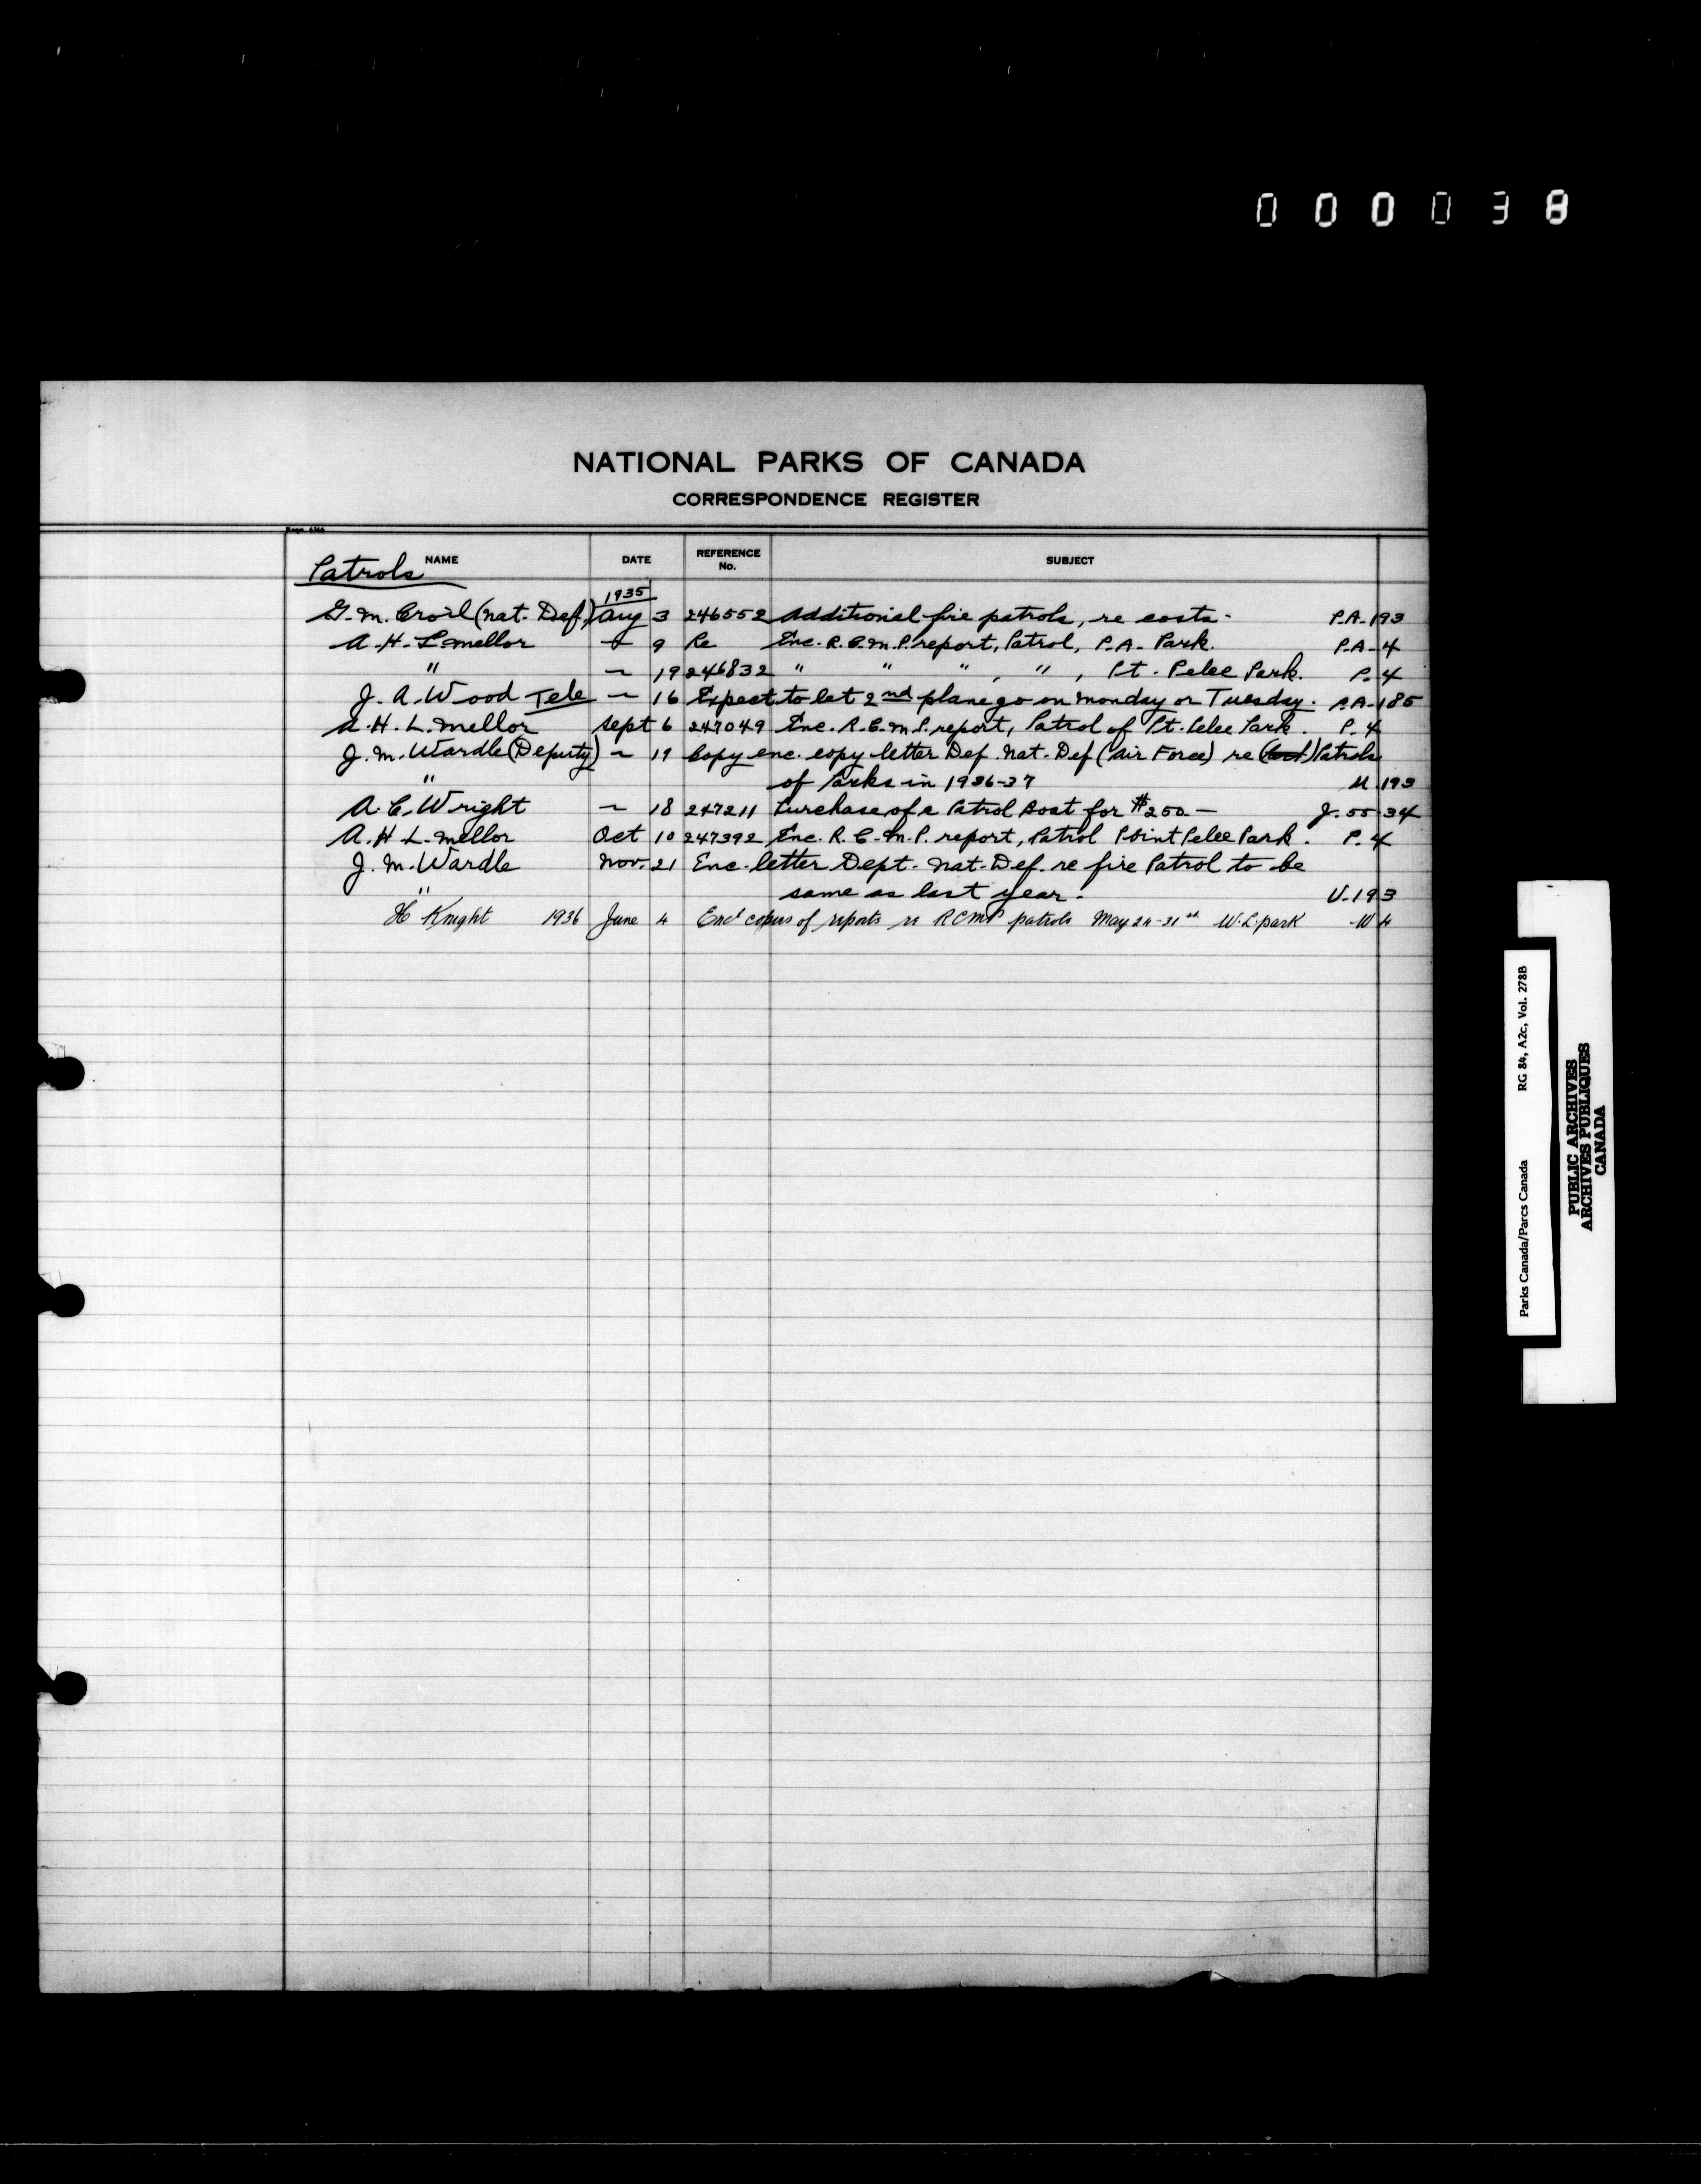 000038
NATIONAL PARKS OF CANADA
CORRESPONDENCE REGISTER
NAME DATE REFERENCE No. SUBJECT
Patrols
1935
G. M. Croil (Nat. Def.) Aug 3 246552 Additional fire patrols, re costs. P.A. 193
A. H. L. Mellor " 9 Re Enc. R.C.M.P. report, Patrol, P.A. Park. P.A-4
" " 19 246832 " " " , " , Pt. Pelee Park. P. 4
J. A. Wood Tele " 16 Expect to let 2nd plane go on Monday or Tuesday. P.A-185
A. H. L. Mellor Sept 6 247049 Enc. R.C.M.P. report, Patrol of Pt. Pelee Park. P. 4
J. M. Wardle (Deputy) " 19 Copy enc. copy letter Def. Nat. Def (Air Force) re Patrols
" of Parks in 1936-37 U. 193
A. C. Wright " 18 247211 Purchase of a Patrol Boat for $250.— J. 55-34
A. H. L. Mellor Oct 10 247392 Enc. R.C.M.P. report, Patrol Point Pelee Park. P. 4
J. M. Wardle Nov. 21 Enc. letter Dept. Nat. Def. re fire Patrol to be
" same as last year. U-193
H Knight 1936 June 4 Encl copies of reports re RCMP patrols May 24-31st W.L. park W 4
Parks Canada/Parcs Canada RG 84, A2c, Vol. 278B
PUBLIC ARCHIVES
ARCHIVES PUBLIQUES
CANADA